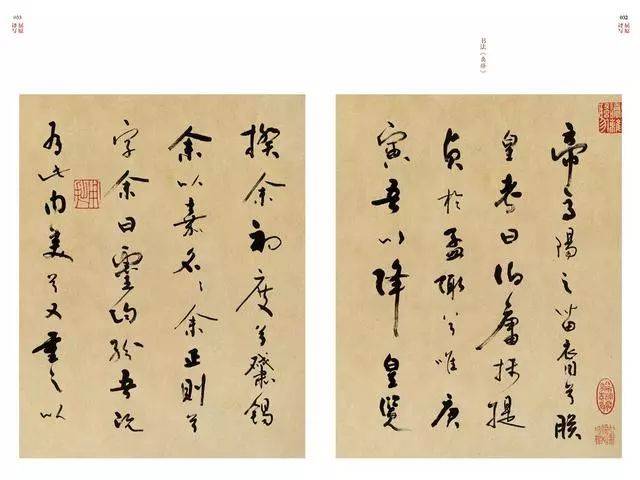 032
屈原
书法《离骚》
帝高陽之苗裔兮朕
皇考曰伯庸攝提
貞於孟陬兮唯庚
寅吾以降皇覽
033
屈原
揆余初度兮肇錫
余以嘉名〻余正則兮
字余曰靈均紛吾既
有此内美兮又重之以